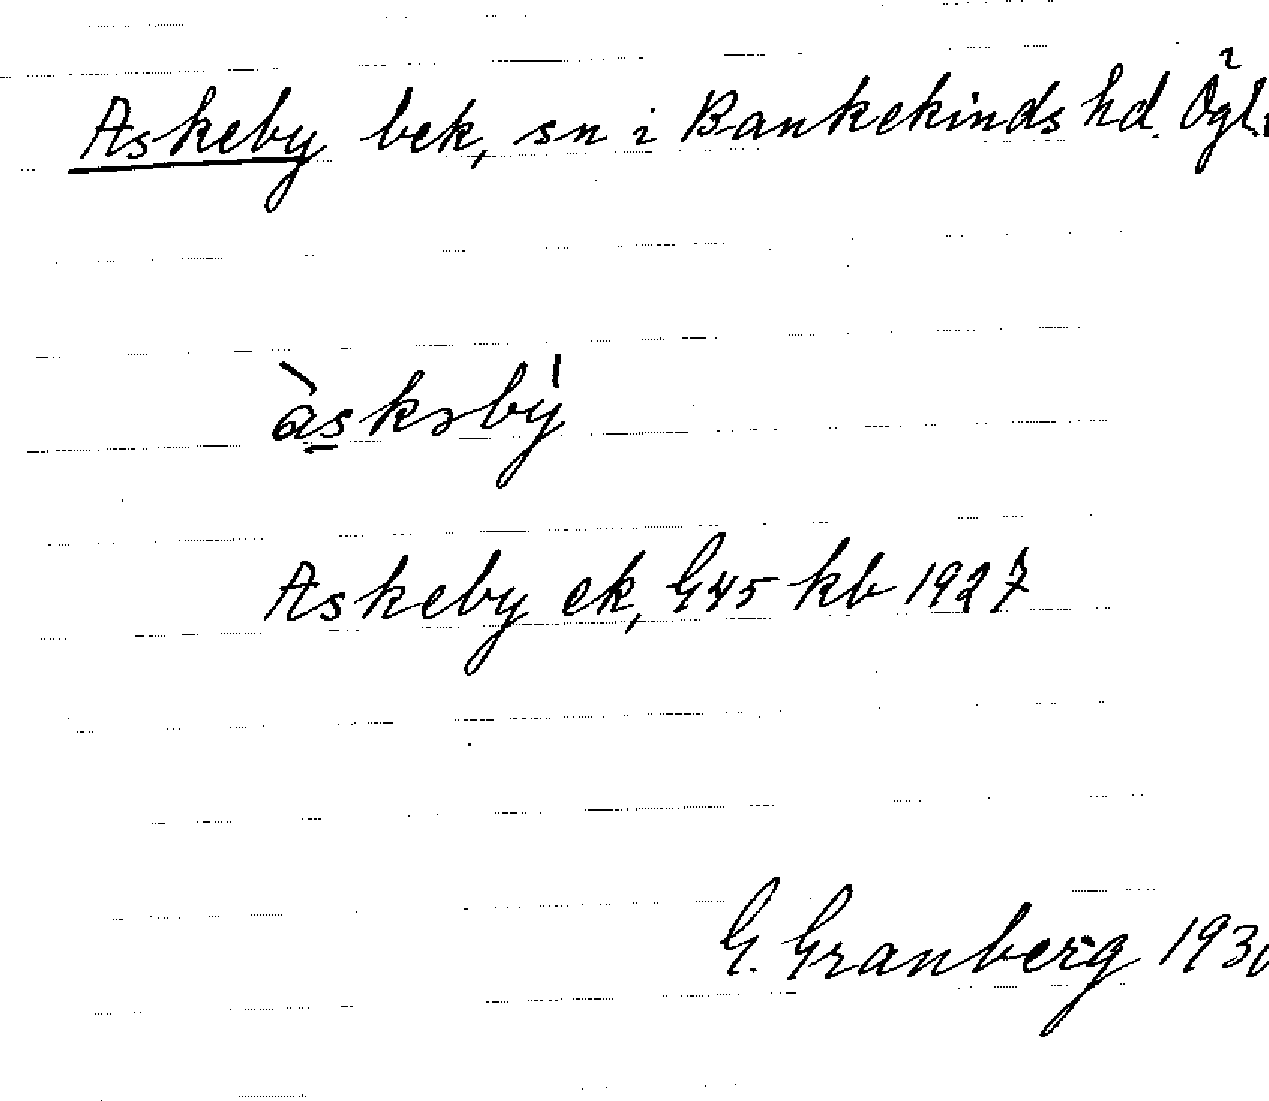 Askeby bek, sn i Bankekinds hd. Ögl.
àskəbý
Askeby ek, G45 kb 1927
G. Granberg 1930